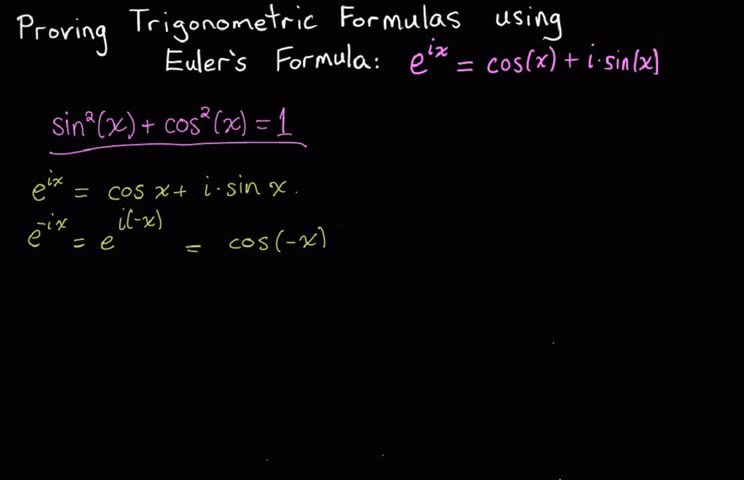 Proving Trigonometric Formulas using
Euler's Formula: e^{ix} = cos(x) + i·sin(x)
sin²(x) + cos²(x) = 1
e^{ix} = cos x + i·sin x.
e^{-ix} = e^{i(-x)} = cos(-x)